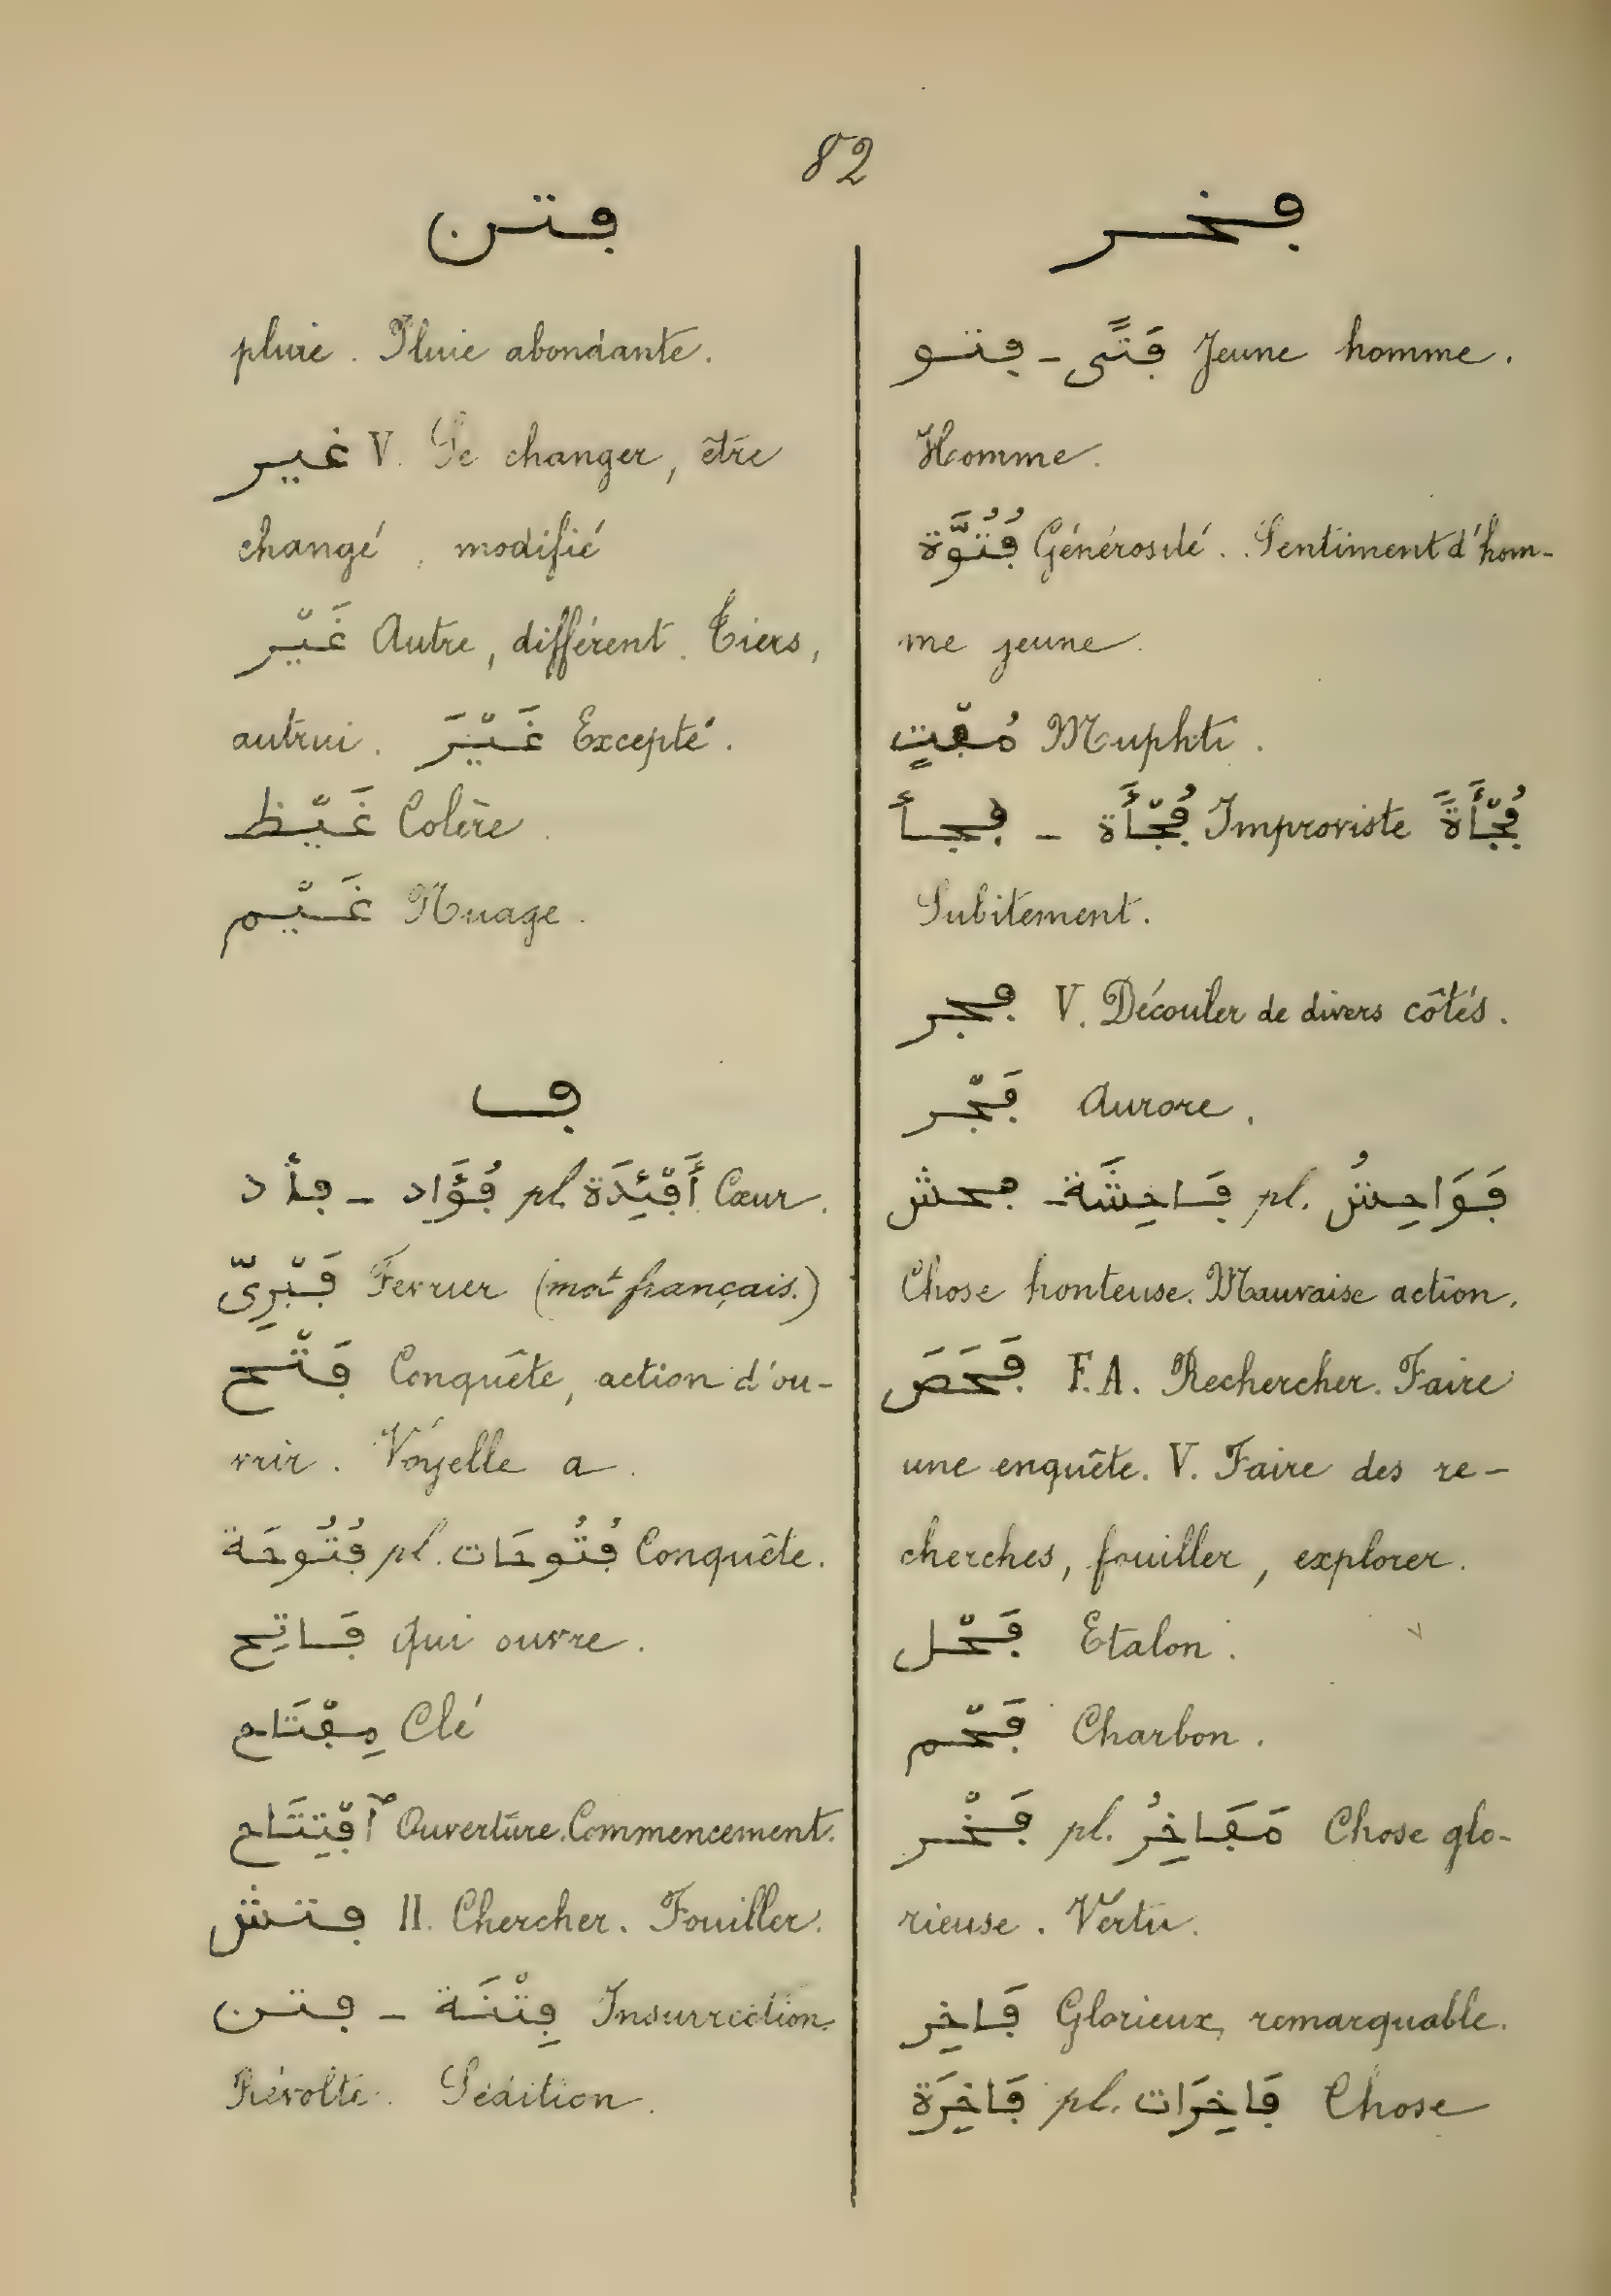 82
فتن
فخر
pluie. Pluie abondante.
غير V. Se changer, être
changé, modifié
غَيْر Autre, différent. Tiers,
autrui. غَيْرَ Excepté.
غَيْظ Colère.
غَيْم Nuage.
ف
فأد - فُؤَاد pl. أَفْئِدَة Cœur.
فَبْرِيّ Fevrier (mot français.)
فَتْح Conquête, action d'ou-
vrir. Voyelle a.
فُتُوحَة pl. فُتُوحَات Conquête.
فَاتِح qui ouvre.
مِفْتَاح Clé
ٱفْتِتَاح Ouverture. Commencement.
فتش II. Chercher. Fouiller.
فتن - فِتْنَة Insurrection.
Révolte. Sédition.
فتو - فَتًى Jeune homme.
Homme.
فُتُوَّة Générosité. Sentiment d'hom-
me jeune.
مُفْتٍ Muphti.
فجأ - فُجْأَة Improviste فُجْأَةً
Subitement.
فجر V. Découler de divers côtés.
فَجْر Aurore.
فحش - فَاحِشَة pl. فَوَاحِشُ
Chose honteuse. Mauvaise action.
فَحَصَ F.A. Rechercher. Faire
une enquête. V. Faire des re-
cherches, fouiller, explorer.
فَحْل Etalon.
فَحْم Charbon.
فَخْر pl. مَفَاخِرُ Chose glo-
rieuse. Vertu.
فَاخِر Glorieux, remarquable.
فَاخِرَة pl. فَاخِرَات Chose